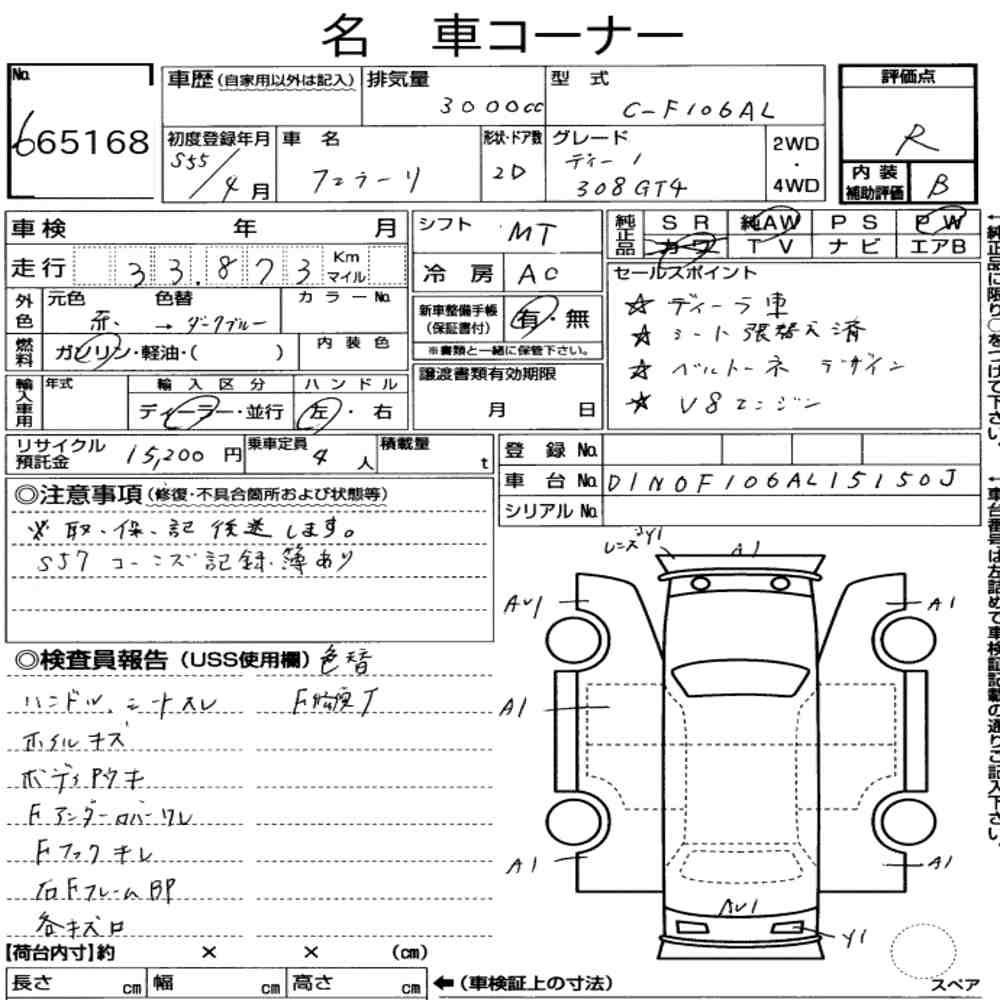 名 車コーナー
No. 665168
車歴 (自家用以外は記入) 排気量 3000cc 型式 C-F106AL
評価点 R
初度登録年月 S55/4月 車名 フェラーリ 形状・ドア数 2D グレード ディーノ 308GT4 2WD・4WD
内装補助評価 B
車検 年 月
走行 33.873 Km マイル
シフト MT
冷房 AC
純正品 SR 純AW PS PW
カワ TV ナビ エアB
外色 元色 赤. 色替 → ダークブルー カラーNo.
燃料 ガソリン・軽油・( ) 内装色
新車整備手帳(保証書付) 有・無
※書類と一緒に保管下さい。
譲渡書類有効期限 月 日
セールスポイント
☆ ディーラ車
☆ シート張替え済
☆ ベルトーネ デザイン
☆ V8エンジン
輸入車用 年式 輸入区分 ディーラー・並行 ハンドル 左・右
リサイクル預託金 15,200円 乗車定員 4人 積載量 t
登録No.
車台No. DINOF106AL15150J
シリアルNo.
←純正品に限り○をつけて下さい。
←車台番号は左詰めで車検証記載の通りご記入下さい。
◎注意事項 (修復・不具合箇所および状態等)
※取.保.記 後送します。
S57 コーンズ記録.簿あり
◎検査員報告 (USS使用欄) 色替
ハンドル、シートスレ
ホイルキズ
ボディPウキ
Fアンダーカバーワレ
Fフックキレ
右FフレームBP
各キズロ
レンズY1
A1
AU1
A1
A1
A1
A1
AU1
Y1
スペア
【荷台内寸】約 × × (cm)
長さ cm 幅 cm 高さ cm ←(車検証上の寸法)